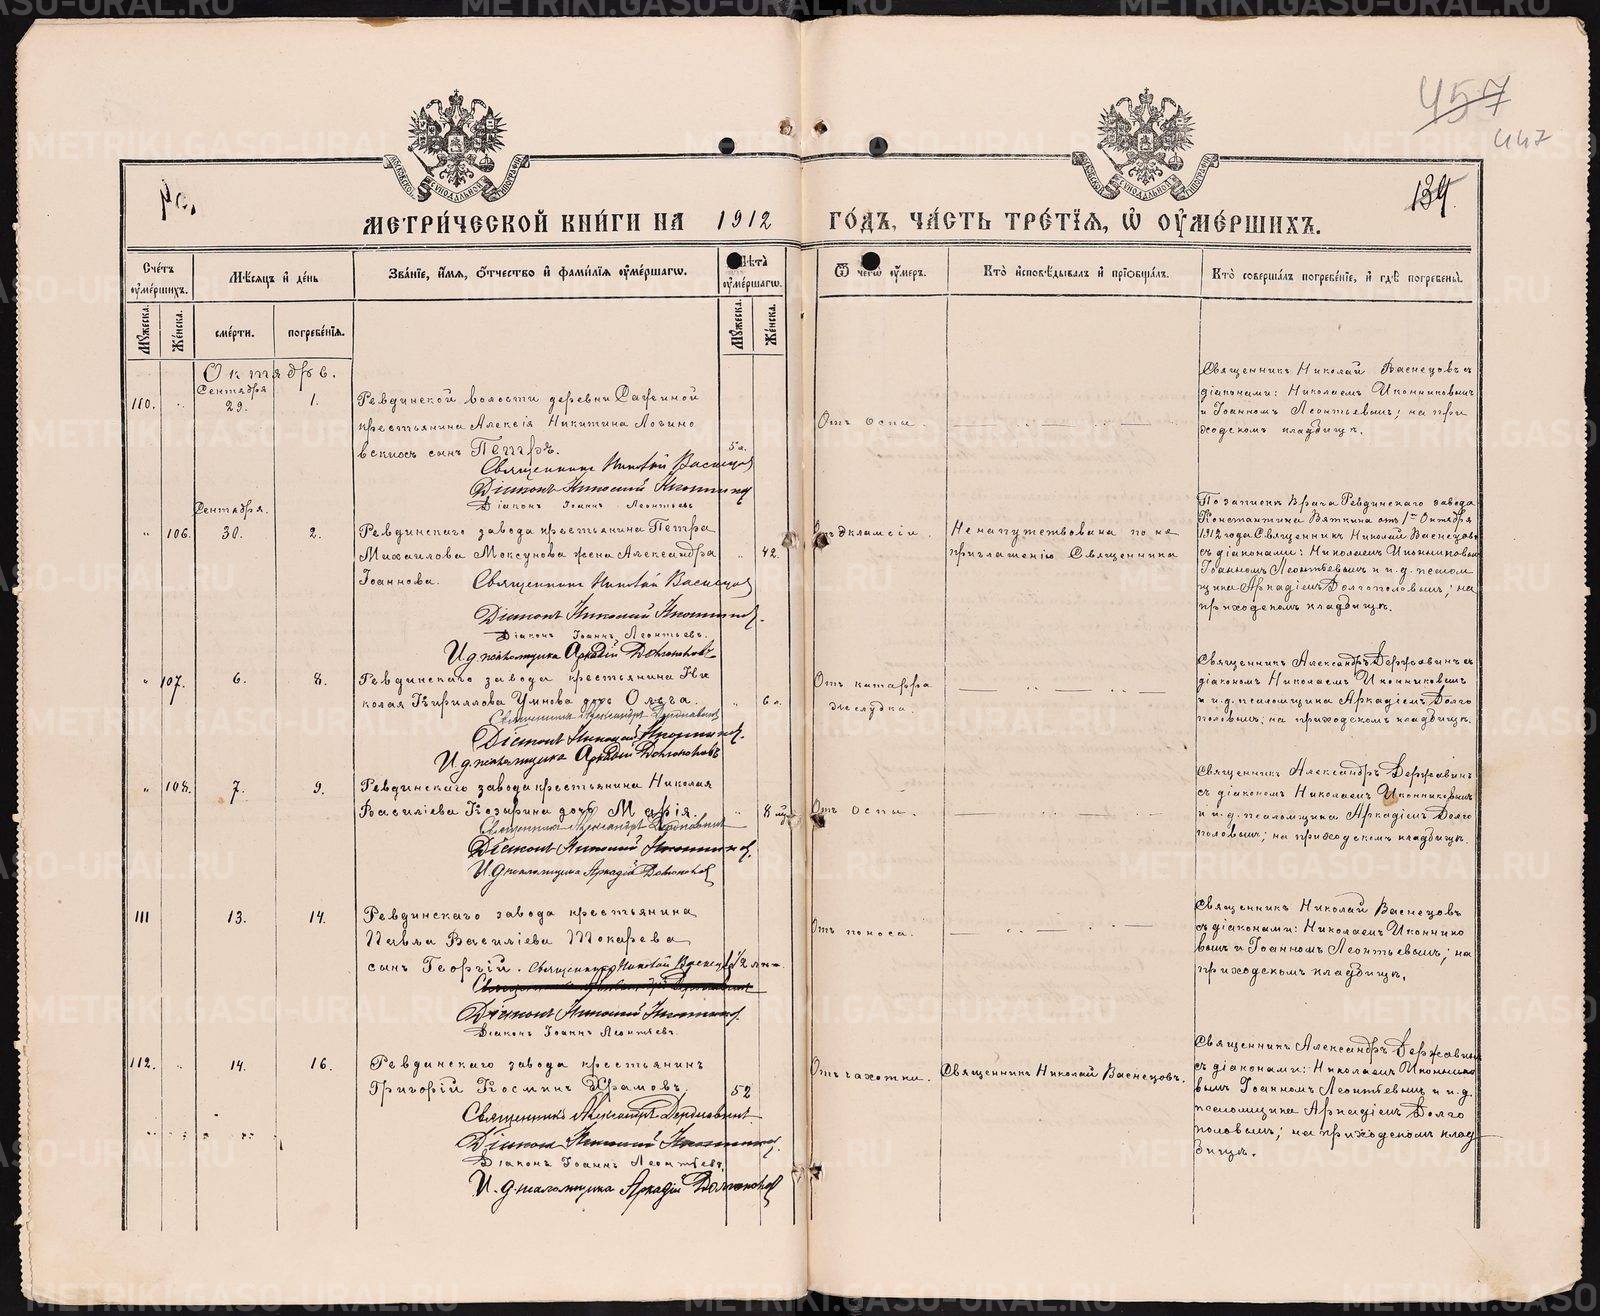 457
447
139.
МЕТРИ́ЧЕСКОЙ КНИ́ГИ НА 1912 ГО́ДЪ, ЧА́СТЬ ТРЕ́ТЇЯ, Ѡ ОУ҆МЕ́РШИХЪ.
Сче́тъ оу҆ме́ршихъ.
Мѣсяцъ и҆ де́нь
Зва́нїе, и҆́мя, ѻ҆́тчество и҆ фами́лїя оу҆ме́ршагѡ.
Лѣта̀ оу҆ме́ршагѡ.
Ѿ чегѡ̀ оу҆́меръ.
Кто̀ и҆сповѣ́дывалъ и҆ прїѡбща́лъ.
Кто̀ соверша́лъ погребе́нїе, и҆ гдѣ̀ погребены̀.
Мꙋ́жеска.
Же́нска.
сме́рти.
погребе́нїя.
Мꙋ́жеска.
Же́нска.
Октябрь.
110.
Сентября
29.
1.
Ревдинской волости деревни
крестьянина Алексія Никитина Логино
вскихъ сынъ Петръ.
5 л.
Священникъ Николай Васнецов
Діаконъ Николай Иконников
Діаконъ Іоаннъ Леонтьевъ
Отъ оспы.
Священникъ Николай Васнецовъ с
діаконами: Николаемъ Иконниковымъ
и Іоанномъ Леонтьевымъ; на при
ходскомъ кладбищѣ.
106.
Сентября.
30.
2.
Ревдинскаго завода крестьянина Петра
Михаилова Моксунова жена Александра
Іоаннова.
42.
Священникъ Николай Васнецов
Діаконъ Николай Иконников.
Діаконъ Іоаннъ Леонтьевъ.
И. д. псаломщика Аркадій Долгополовъ
Отъ эклампсіи.
Не напутствована по не
приглашенію Священника
По записки врача Ревдинскаго завода
Константина Вяткина отъ 1го Октября
1912 года Священникъ Николай Васнецовъ
съ діаконами: Николаемъ Иконниковымъ
Іоанномъ Леонтьевымъ и и. д. псалом
щика Аркадіемъ Долгополовымъ; на
приходскомъ кладбищѣ.
107.
6.
8.
Ревдинскаго завода крестьянина Ни
колая Кириллова Умнова дочь Ольга.
6 л.
Священникъ Александръ Державинъ
Діаконъ Николай Иконников.
И. д. псаломщика Аркадій Долгополовъ
Отъ катарра
желудка.
Священникъ Александръ Державинъ с
діакономъ Николаемъ Иконниковымъ
и и. д. псаломщика Аркадіемъ Долго
половымъ; на приходскомъ кладбищѣ.
108.
7.
9.
Ревдинскаго завода крестьянина Николая
Василіева Козырина дочь Марія.
8 м.
Священникъ Александръ Державинъ
Діаконъ Николай Иконников.
И. д. псаломщика Аркадій Долгополов
Отъ оспы.
Священникъ Александръ Державинъ
съ діакономъ Николаемъ Иконниковымъ
и и. д. псаломщика Аркадіемъ Долго
половымъ; на приходскомъ кладбищѣ.
111
13.
14.
Ревдинскаго завода крестьянина
Павла Василіева Токарева
сынъ Георгій.
Священникъ Николай Васнецов
Священникъ Александръ Державинъ
Діаконъ Николай Иконников.
Діаконъ Іоаннъ Леонтьевъ.
Отъ поноса.
Священникъ Николай Васнецовъ
съ діаконами: Николаемъ Иконнико
вымъ и Іоанномъ Леонтьевымъ; на
приходскомъ кладбищѣ.
112.
14.
16.
Ревдинскаго завода крестьянинъ
Григорій Космин Храмовъ.
52
Священникъ Александръ Державинъ
Діаконъ Николай Иконников.
Діаконъ Іоаннъ Леонтьевъ.
И. д. псаломщика Аркадій Долгополов
Отъ чахотки.
Священникъ Николай Васнецовъ.
Священникъ Александръ Державинъ
съ діаконами: Николаемъ Иконнико
вымъ Іоанномъ Леонтьевымъ и и. д.
псаломщика Аркадіемъ Долго
половымъ; на приходскомъ клад
бищѣ.
METRIKI.GASO-URAL.RU